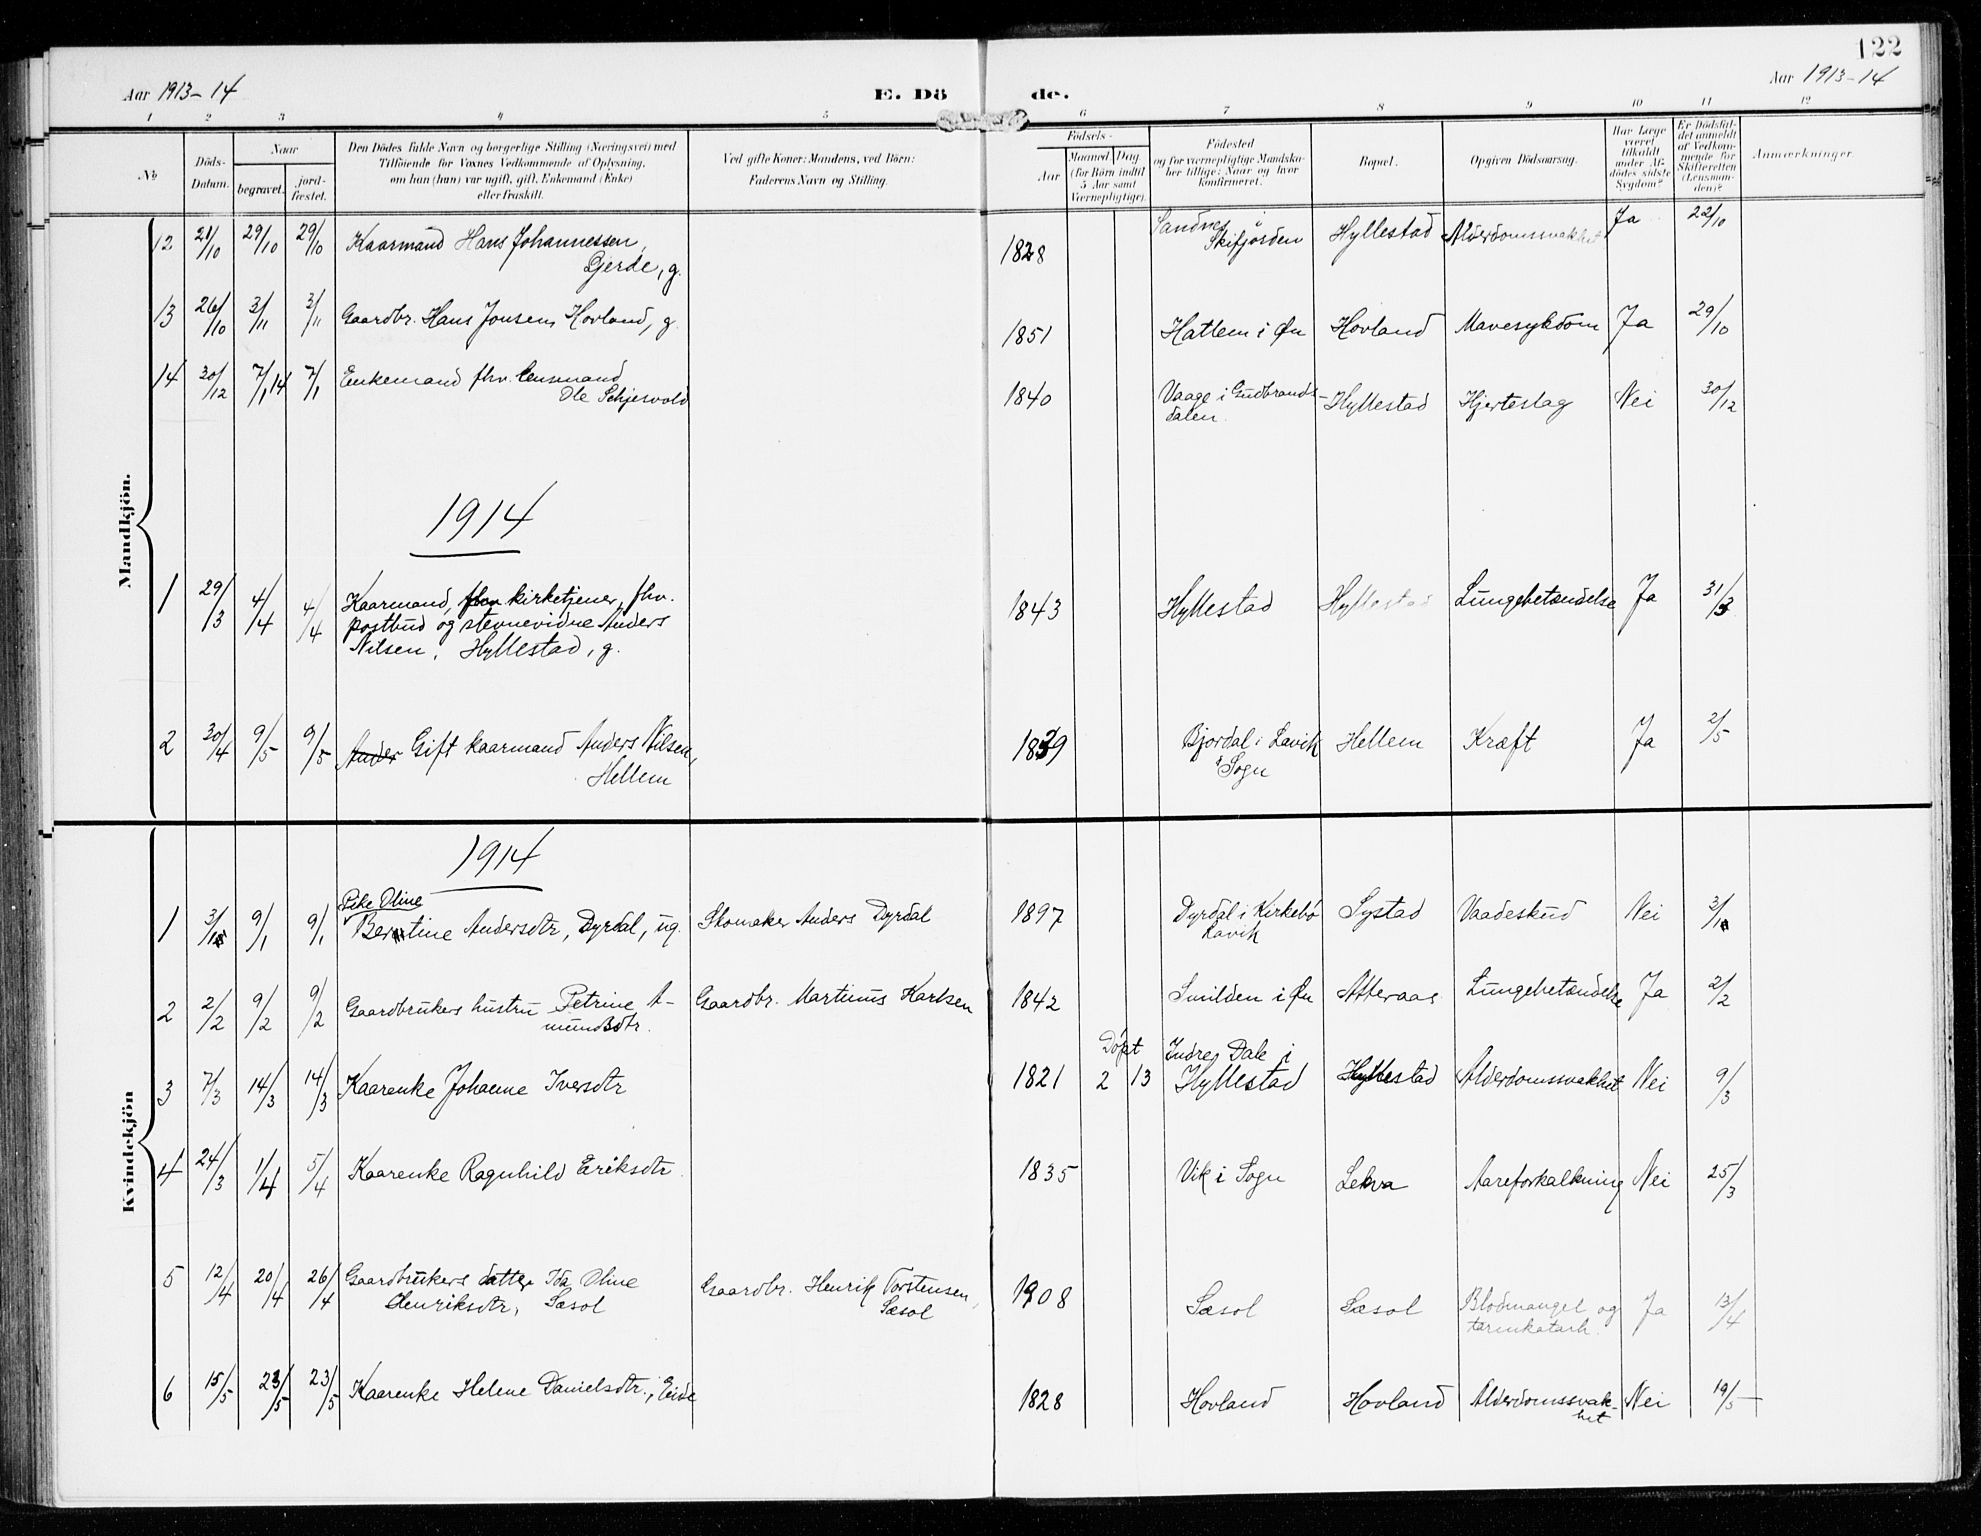 122
Aar 1913-14
E. Dö de.
Aar 1913-14
1 2 3 4 5 6 7 8 9 10 11 12
No
Döds-Datum.
Naar
begravet.
jordfæstet.
Den Dödes fulde Navn og borgerlige Stilling (Næringsvei) med
Tilföiende for Voxnes Vedkommende af Oplysning,
om han (hun) var ugift, gift, Enkemand (Enke)
eller fraskilt.
Ved gifte Koner: Mandens, ved Börn:
Faderens Navn og Stilling.
Födsels-
Aar
Maaned Dag
(for Börn indtil
5 Aar samt
Værnepligtige).
Födested
og for værnepligtige Mandskaber tillige: Naar og hvor
konfirmeret.
Bopæl.
Opgiven Dödsaarsag.
Har Læge
været
tilkaldt
under Afdödes sidste
Sygdom?
Er Dödsfaldet anmeldt
af Vedkommende for
Skifteretten
(Lensmanden)?
Anmærkninger.
Mandkjön.
12 21/10 29/10 29/10 Kaarmand Hans Johannessen,
Gjerde, g.
1828 Sandnes i
Skifjorden Hyllestad Alderdomssvakhet Ja 22/10
13 26/10 3/11 3/11 Gaardbr. Hans Jonsen Hovland, g. 1851 Hatlem i Øn Hovland Mavesykdom Ja 29/10
14 30/12 7/1 14 7/1 Enkemand fhv. lensmand
Ole Schjesvold
1840 Vaage i Gudbrands-
dalen. Hyllestad Hjerteslag Nei 30/12
1914
1 29/3 4/4 4/4 Kaarmand, fhv kirketjener, fhv.
postbud og stevnevidne Anders
Nilsen, Hyllestad, g.
1843 Hyllestad Hyllestad Lungebetændelse Ja 31/3
2 30/4 9/5 9/5 Ander Gift kaarmand Anders Nilsen,
Hellem
1839 Bjordal i Lavik
i Sogn Hellem Kræft Ja 2/5
Kvindekjön
1914
1 3/1 9/1 9/1 Pike Oline
Berntine Andersdtr, Dyrdal, ug. Skomaker Anders Dyrdal 1897 Dyrdal i Kirkebø
Lavik Systad Vaadeskud Nei 3/1
2 2/2 9/2 9/2 Gaardbrukers hustru Petrine A-
mundsdtr. Gaardbr. Martinus Karlsen 1842 Smilden i Øn Atteraas Lungebetændelse Ja 2/2
3 7/3 14/3 14/3 Kaarenke Johanne Iversdtr 1821 Døpt
2 13 Indre Dale i
Hyllestad Hyllestad Alderdomssvakhet Nei 9/3
4 24/3 1/4 5/4 Kaarenke Ragnhild Eriksdtr. 1835 Vik i Sogn Lekva Aareforkalkning Nei 25/3
5 12/4 20/4 26/4 Gaardbrukers datter Ida Oline
Henriksdtr, Sæsol Gaardbr. Henrik Torstensen,
Sæsol 1908 Sæsol Sæsol Blodmangel og
tarmkatarh. Ja 13/4
6 15/5 23/5 23/5 Kaarenke Helene Danielsdtr., Eide 1828 Hovland Hovland Alderdomssvak-
het Nei 19/5